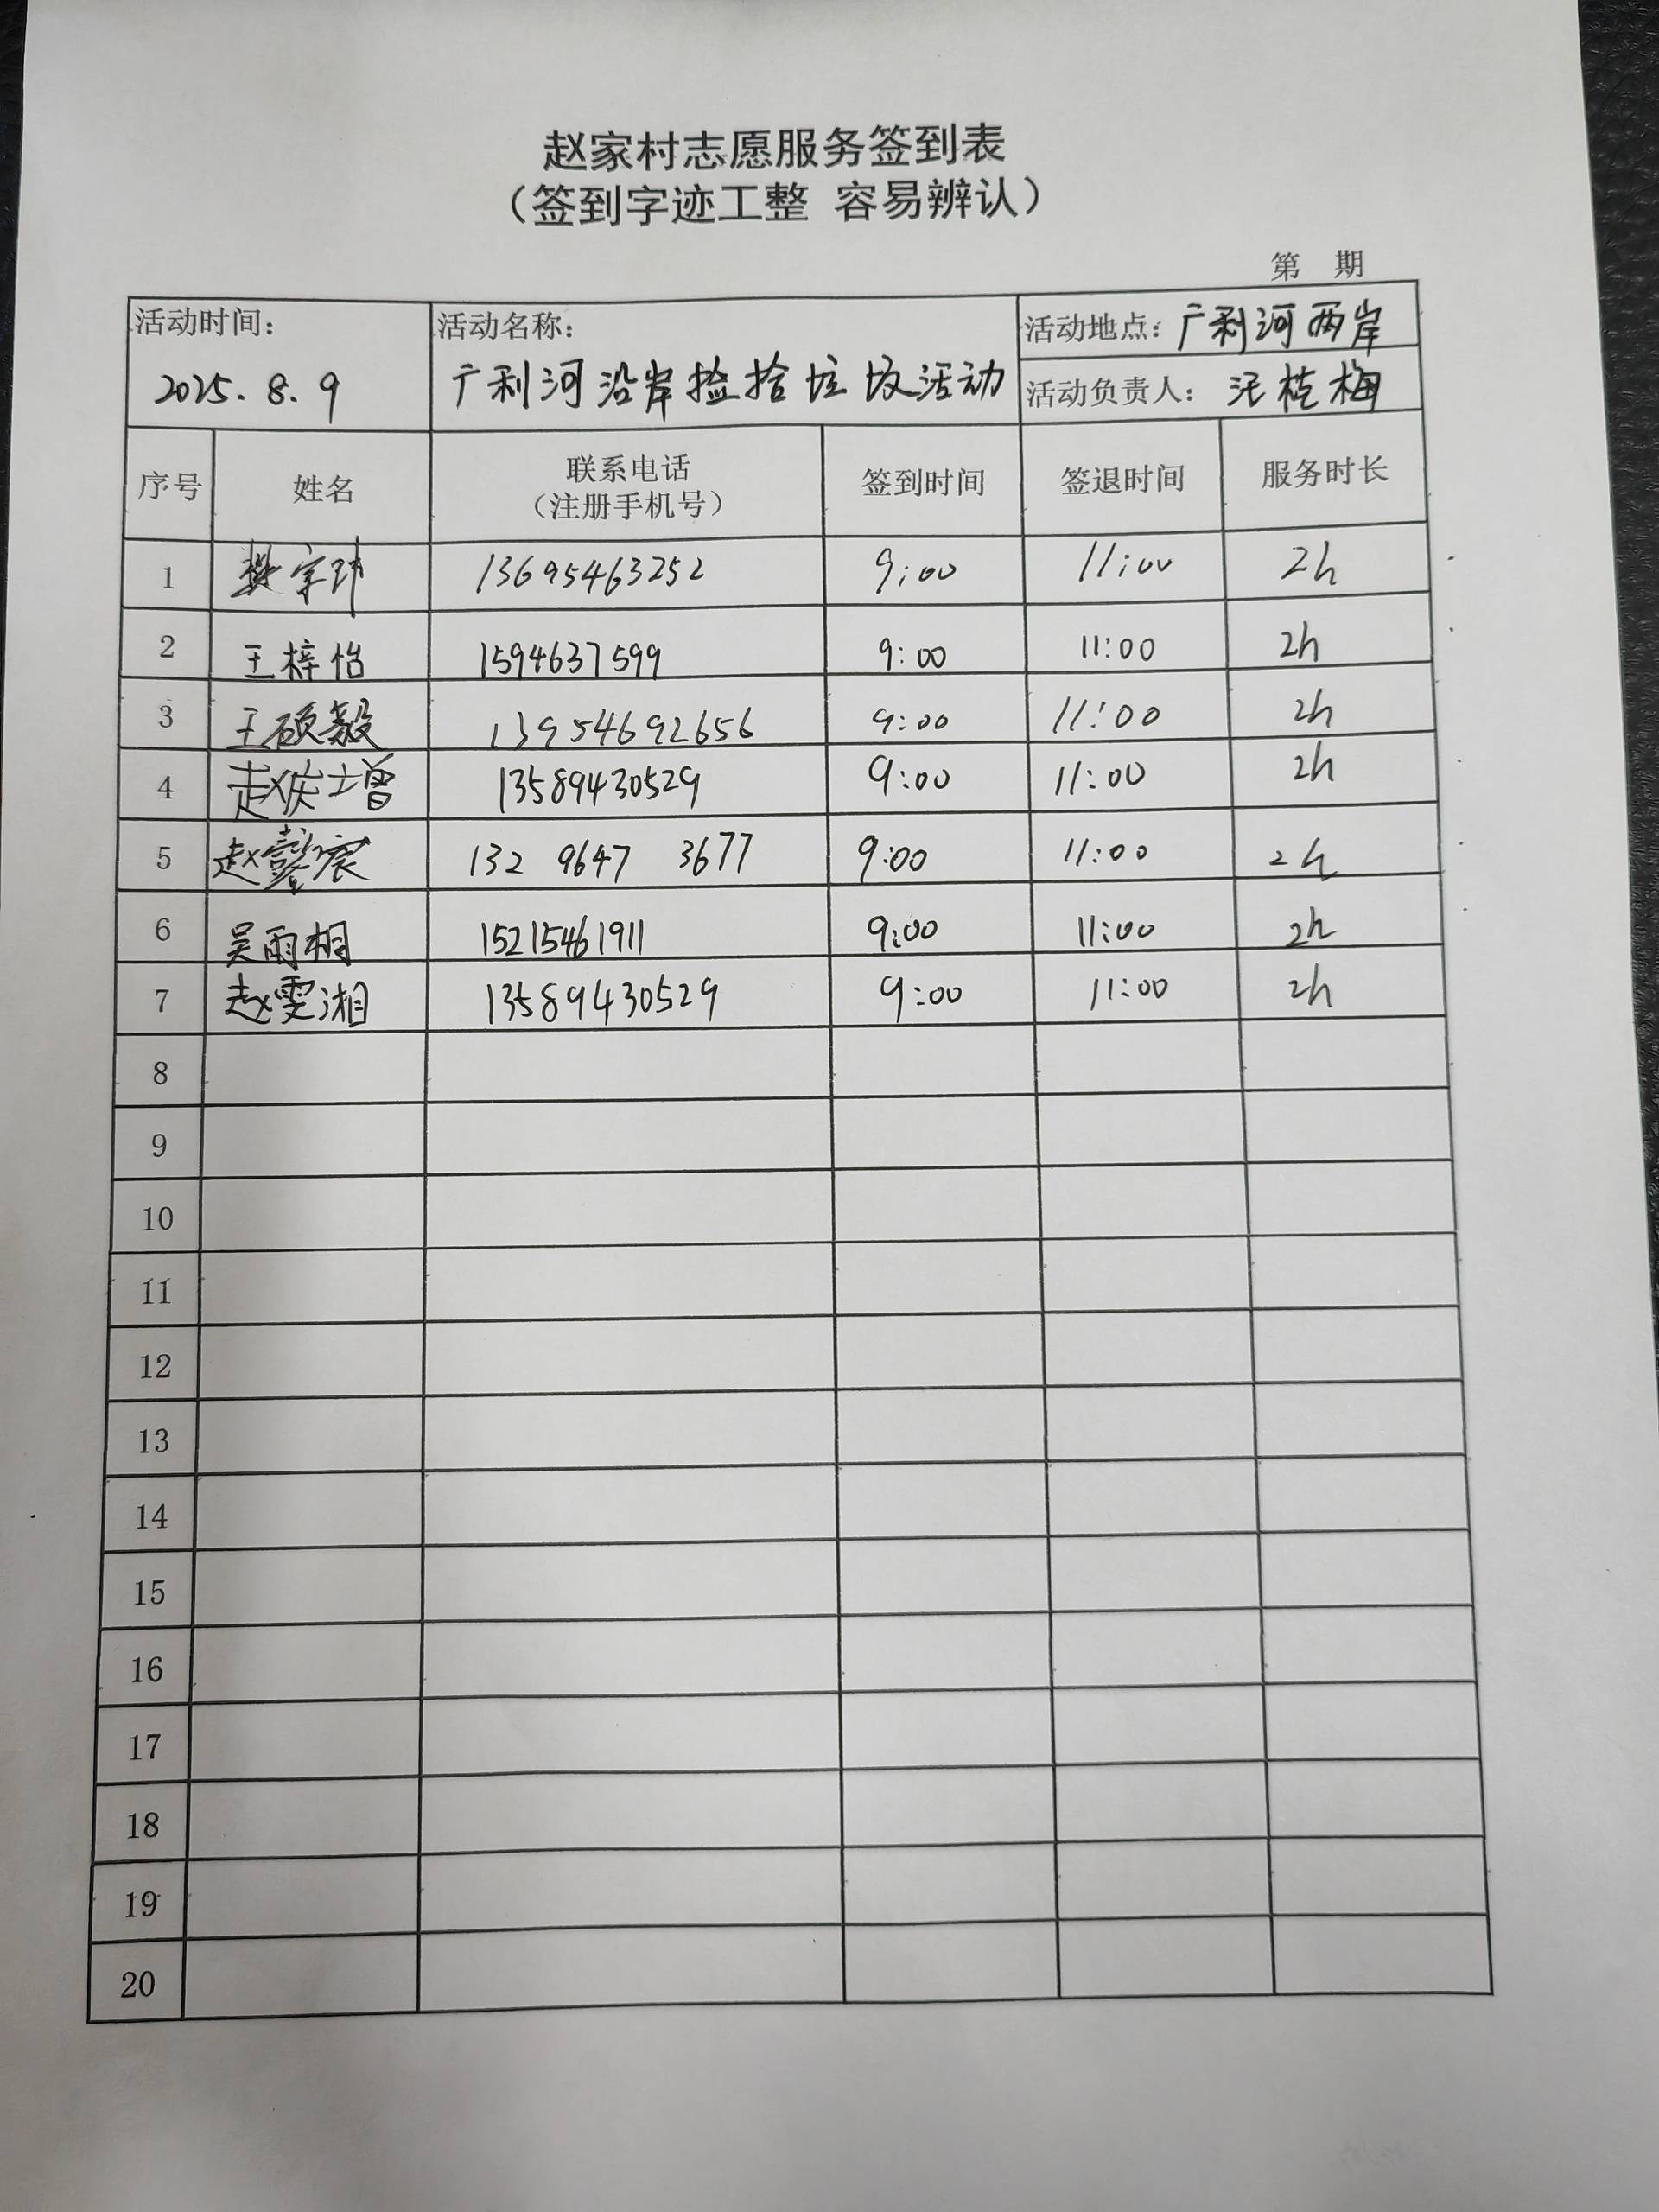 赵家村志愿服务签到表
（签到字迹工整 容易辨认）
第 期
活动时间： 活动名称： 活动地点：广利河两岸
2025.8.9 广利河沿岸捡拾垃圾活动 活动负责人：汪桂梅
序号 姓名 联系电话 签到时间 签退时间 服务时长
（注册手机号）
1 13695463252 9:00 11:00 2h
2 王梓怡 1594637599 9:00 11:00 2h
3 王硕毅 13954692656 9:00 11:00 2h
4 赵庆增 13589430529 9:00 11:00 2h
5 赵懿宸 132 9647 3677 9:00 11:00 2h
6 吴雨桐 15215461911 9:00 11:00 2h
7 赵雯湘 13589430529 9:00 11:00 2h
8
9
10
11
12
13
14
15
16
17
18
19
20